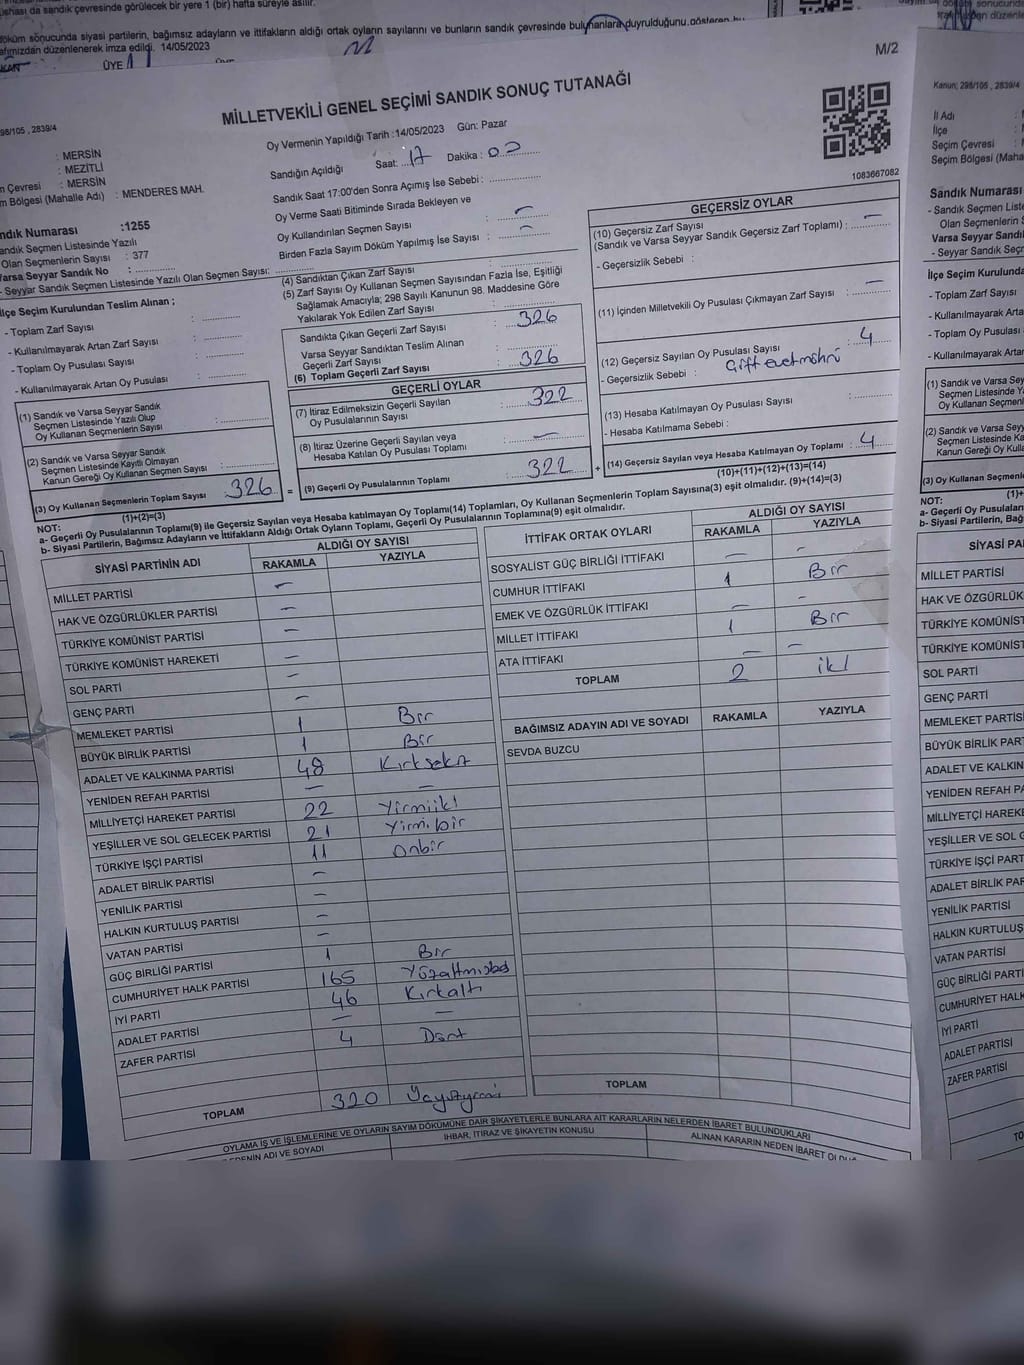 döküm sonucunda siyasi partilerin, bağımsız adayların ve ittifakların aldığı ortak oyların sayılarını ve bunların sandık çevresinde bulunanlara duyurulduğunu gösteren
düzenlenerek imza edildi. 14/05/2023
ÜYE
M/2
MİLLETVEKİLİ GENEL SEÇİMİ SANDIK SONUÇ TUTANAĞI
98/105 , 2839/4
Oy Vermenin Yapıldığı Tarih :14/05/2023 Gün: Pazar
: MERSİN
: MEZİTLİ
m Çevresi : MERSİN
m Bölgesi (Mahalle Adı) : MENDERES MAH.
Sandığın Açıldığı Saat: 17 Dakika :
Sandık Saat 17:00'den Sonra Açımış İse Sebebi :
Oy Verme Saati Bitiminde Sırada Bekleyen ve
Oy Kullandırılan Seçmen Sayısı : -
Birden Fazla Sayım Döküm Yapılmış İse Sayısı : -
1083667082
ndık Numarası :1255
andık Seçmen Listesinde Yazılı
Olan Seçmenlerin Sayısı : 377
Varsa Seyyar Sandık No :
- Seyyar Sandık Seçmen Listesinde Yazılı Olan Seçmen Sayısı:
İlçe Seçim Kurulundan Teslim Alınan ;
- Toplam Zarf Sayısı :
- Kullanılmayarak Artan Zarf Sayısı :
- Toplam Oy Pusulası Sayısı :
- Kullanılmayarak Artan Oy Pusulası :
(1) Sandık ve Varsa Seyyar Sandık
Seçmen Listesinde Yazılı Olup
Oy Kullanan Seçmenlerin Sayısı :
(2) Sandık ve Varsa Seyyar Sandık
Seçmen Listesinde Kayıtlı Olmayan
Kanun Gereği Oy Kullanan Seçmen Sayısı :
(3) Oy Kullanan Seçmenlerin Toplam Sayısı : 326
(1)+(2)=(3)
(4) Sandıktan Çıkan Zarf Sayısı :
(5) Zarf Sayısı Oy Kullanan Seçmen Sayısından Fazla İse, Eşitliği
Sağlamak Amacıyla; 298 Sayılı Kanunun 98. Maddesine Göre
Yakılarak Yok Edilen Zarf Sayısı :
Sandıkta Çıkan Geçerli Zarf Sayısı : 326
Varsa Seyyar Sandıktan Teslim Alınan
Geçerli Zarf Sayısı :
(6) Toplam Geçerli Zarf Sayısı : 326
GEÇERLİ OYLAR
(7) İtiraz Edilmeksizin Geçerli Sayılan
Oy Pusulalarının Sayısı : 322
(8) İtiraz Üzerine Geçerli Sayılan veya
Hesaba Katılan Oy Pusulası Toplamı : -
(9) Geçerli Oy Pusulalarının Toplamı : 322
GEÇERSİZ OYLAR
(10) Geçersiz Zarf Sayısı
(Sandık ve Varsa Seyyar Sandık Geçersiz Zarf Toplamı) : -
- Geçersizlik Sebebi :
(11) İçinden Milletvekili Oy Pusulası Çıkmayan Zarf Sayısı : -
(12) Geçersiz Sayılan Oy Pusulası Sayısı : 4
- Geçersizlik Sebebi : Çift evet mührü
(13) Hesaba Katılmayan Oy Pusulası Sayısı :
- Hesaba Katılmama Sebebi :
(14) Geçersiz Sayılan veya Hesaba Katılmayan Oy Toplamı : 4
(10)+(11)+(12)+(13)=(14)
NOT:
a- Geçerli Oy Pusulalarının Toplamı(9) ile Geçersiz Sayılan veya Hesaba katılmayan Oy Toplamı(14) Toplamları, Oy Kullanan Seçmenlerin Toplam Sayısına(3) eşit olmalıdır. (9)+(14)=(3)
b- Siyasi Partilerin, Bağımsız Adayların ve İttifakların Aldığı Ortak Oyların Toplamı, Geçerli Oy Pusulalarının Toplamına(9) eşit olmalıdır.
SİYASİ PARTİNİN ADI ALDIĞI OY SAYISI
RAKAMLA YAZIYLA
MİLLET PARTİSİ -
HAK VE ÖZGÜRLÜKLER PARTİSİ -
TÜRKİYE KOMÜNİST PARTİSİ -
TÜRKİYE KOMÜNİST HAREKETİ -
SOL PARTİ -
GENÇ PARTİ -
MEMLEKET PARTİSİ 1 Bir
BÜYÜK BİRLİK PARTİSİ 1 Bir
ADALET VE KALKINMA PARTİSİ 48 Kırksekiz
YENİDEN REFAH PARTİSİ - -
MİLLİYETÇİ HAREKET PARTİSİ 22 Yirmiiki
YEŞİLLER VE SOL GELECEK PARTİSİ 21 Yirmibir
TÜRKİYE İŞÇİ PARTİSİ 11 Onbir
ADALET BİRLİK PARTİSİ -
YENİLİK PARTİSİ -
HALKIN KURTULUŞ PARTİSİ -
VATAN PARTİSİ -
GÜÇ BİRLİĞİ PARTİSİ 1 Bir
CUMHURİYET HALK PARTİSİ 165 Yüzaltmışbeş
İYİ PARTİ 46 Kırkaltı
ADALET PARTİSİ - -
ZAFER PARTİSİ 4 Dört
TOPLAM 320 Üçyüzyirmi
İTTİFAK ORTAK OYLARI ALDIĞI OY SAYISI
RAKAMLA YAZIYLA
SOSYALİST GÜÇ BİRLİĞİ İTTİFAKI - -
CUMHUR İTTİFAKI 1 Bir
EMEK VE ÖZGÜRLÜK İTTİFAKI - -
MİLLET İTTİFAKI 1 Bir
ATA İTTİFAKI - -
TOPLAM 2 iki
BAĞIMSIZ ADAYIN ADI VE SOYADI RAKAMLA YAZIYLA
SEVDA BUZCU
TOPLAM
OYLAMA İŞ VE İŞLEMLERİNE VE OYLARIN SAYIM DÖKÜMÜNE DAİR ŞİKAYETLERLE BUNLARA AİT KARARLARIN NELERDEN İBARET BULUNDUKLARI
ADI VE SOYADI İHBAR, İTİRAZ VE ŞİKAYETİN KONUSU ALINAN KARARIN NEDEN İBARET
Kanun; 298/105 , 2839/4
İl Adı
İlçe
Seçim Çevresi
Seçim Bölgesi (Maha
Sandık Numarası
- Sandık Seçmen Liste
Olan Seçmenlerin S
Varsa Seyyar Sandı
- Seyyar Sandık Seçm
İlçe Seçim Kurulund
- Toplam Zarf Sayısı
- Kullanılmayarak Arta
- Toplam Oy Pusulası
- Kullanılmayarak Arta
(1) Sandık ve Varsa Sey
Seçmen Listesinde Y
Oy Kullanan Seçmenl
(2) Sandık ve Varsa Seyy
Seçmen Listesinde K
Kanun Gereği Oy Kull
(3) Oy Kullanan Seçmenle
NOT:
a- Geçerli Oy Pusulalarının
b- Siyasi Partilerin, Bağıms
SİYASİ PA
MİLLET PARTİSİ
HAK VE ÖZGÜRLÜK
TÜRKİYE KOMÜNİST
TÜRKİYE KOMÜNİST
SOL PARTİ
GENÇ PARTİ
MEMLEKET PARTİSİ
BÜYÜK BİRLİK PART
ADALET VE KALKIN
YENİDEN REFAH PA
MİLLİYETÇİ HAREK
YEŞİLLER VE SOL G
TÜRKİYE İŞÇİ PART
ADALET BİRLİK PAR
YENİLİK PARTİSİ
HALKIN KURTULUŞ
VATAN PARTİSİ
GÜÇ BİRLİĞİ PARTİ
CUMHURİYET HALK
İYİ PARTİ
ADALET PARTİSİ
ZAFER PARTİSİ
TO